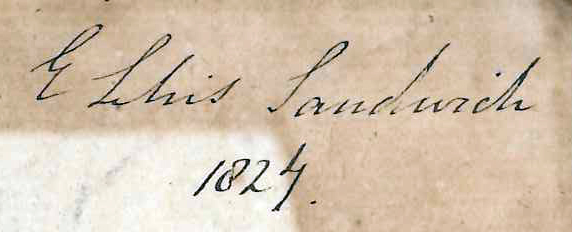 E Ellis Sandwich
1824.